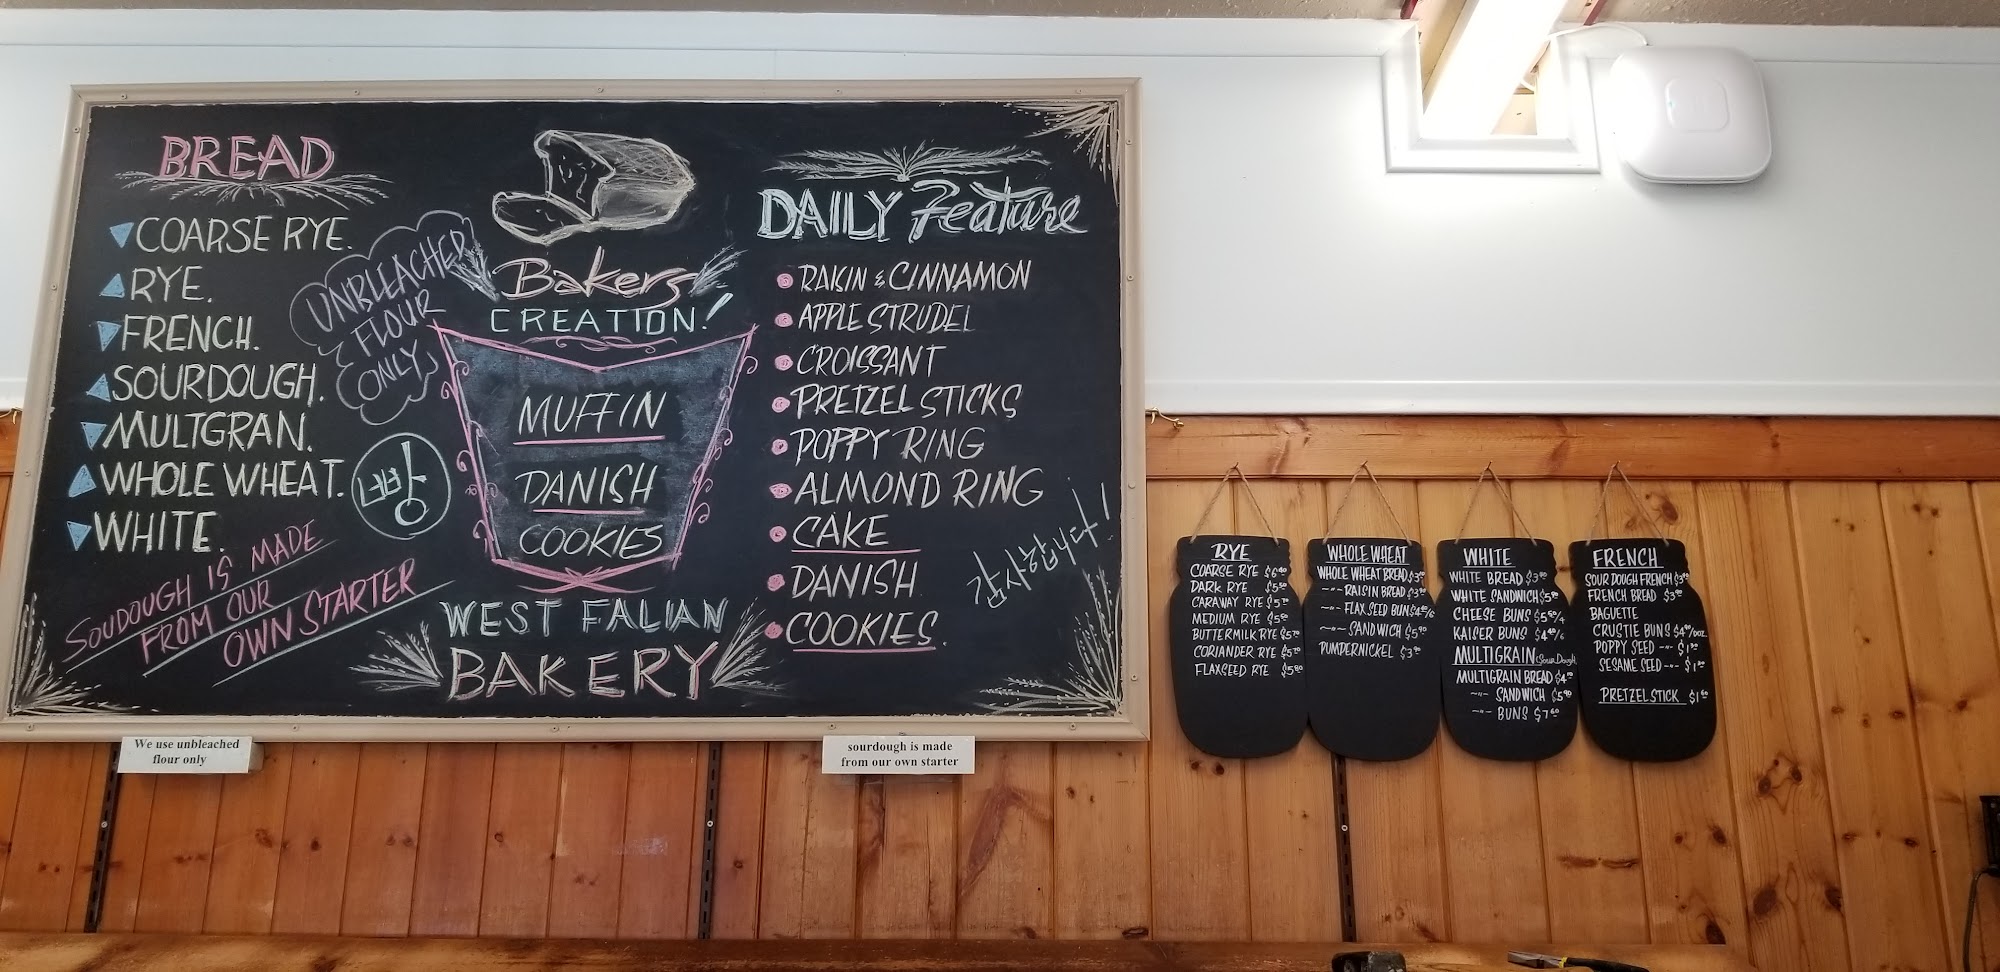 BREAD
COARSE RYE.
RYE.
FRENCH.
SOURDOUGH.
MULTGRAN.
WHOLE WHEAT.
WHITE.
UNBLEACHED
FLOUR
ONLY
빵
SOUDOUGH IS MADE
FROM OUR
OWN STARTER
Bakers
CREATION!
MUFFIN
DANISH
COOKIES
WEST FALIAN
BAKERY
DAILY Feature
RAISIN & CINNAMON
APPLE STRUDEL
CROISSANT
PRETZEL STICKS
POPPY RING
ALMOND RING
CAKE
DANISH
COOKIES.
감사합니다!
We use unbleached
flour only
sourdough is made
from our own starter
RYE
COARSE RYE $6
DARK RYE $5
CARAWAY RYE $5
MEDIUM RYE $5
BUTTERMILK RYE $5
CORIANDER RYE $5
FLAXSEED RYE $5
WHOLE WHEAT
WHOLE WHEAT BREAD $3
-"- RAISIN BREAD $3
-"- FLAX SEED BUN
-"- SANDWICH $5
PUMPERNICKEL $3
WHITE
WHITE BREAD $3
WHITE SANDWICH $5
CHEESE BUNS
KAISER BUNS
MULTIGRAIN (Sour Dough)
MULTIGRAIN BREAD $4
-"- SANDWICH $5
-"- BUNS $7
FRENCH
SOUR DOUGH FRENCH $3
FRENCH BREAD $3
BAGUETTE
CRUSTIE BUNS
POPPY SEED -"- $1
SESAME SEED -"- $1
PRETZEL STICK $1